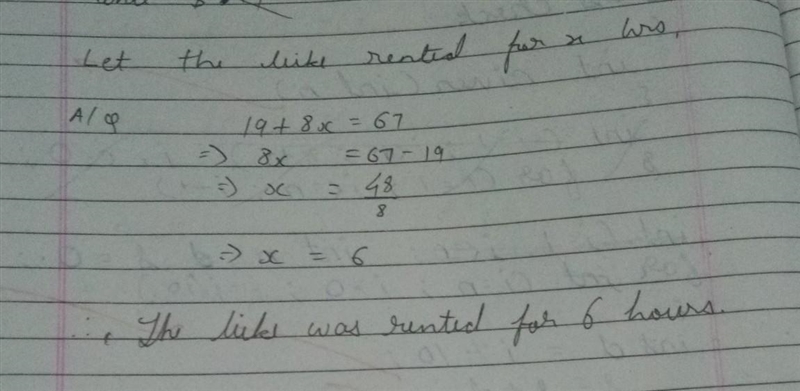 Let the bike rented for x hrs.
A/Q 19 + 8x = 67
=> 8x = 67 - 19
=> x = 48/8
=> x = 6
∴, The bike was rented for 6 hours.